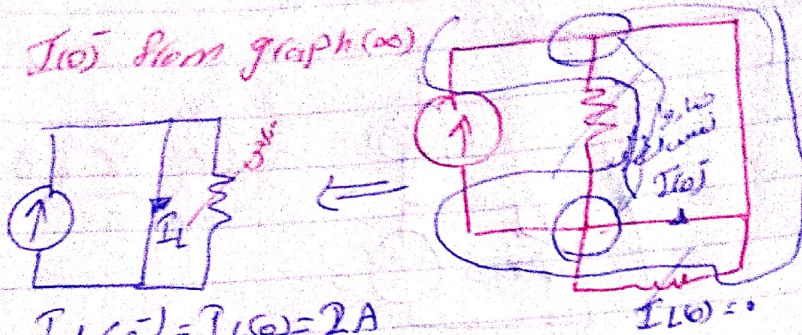 I(0)⁻ from graph(∞)
نفس
I(0)⁻
I_L
I_L(0⁻)=I_L(0)=2A
I_L(0)=0